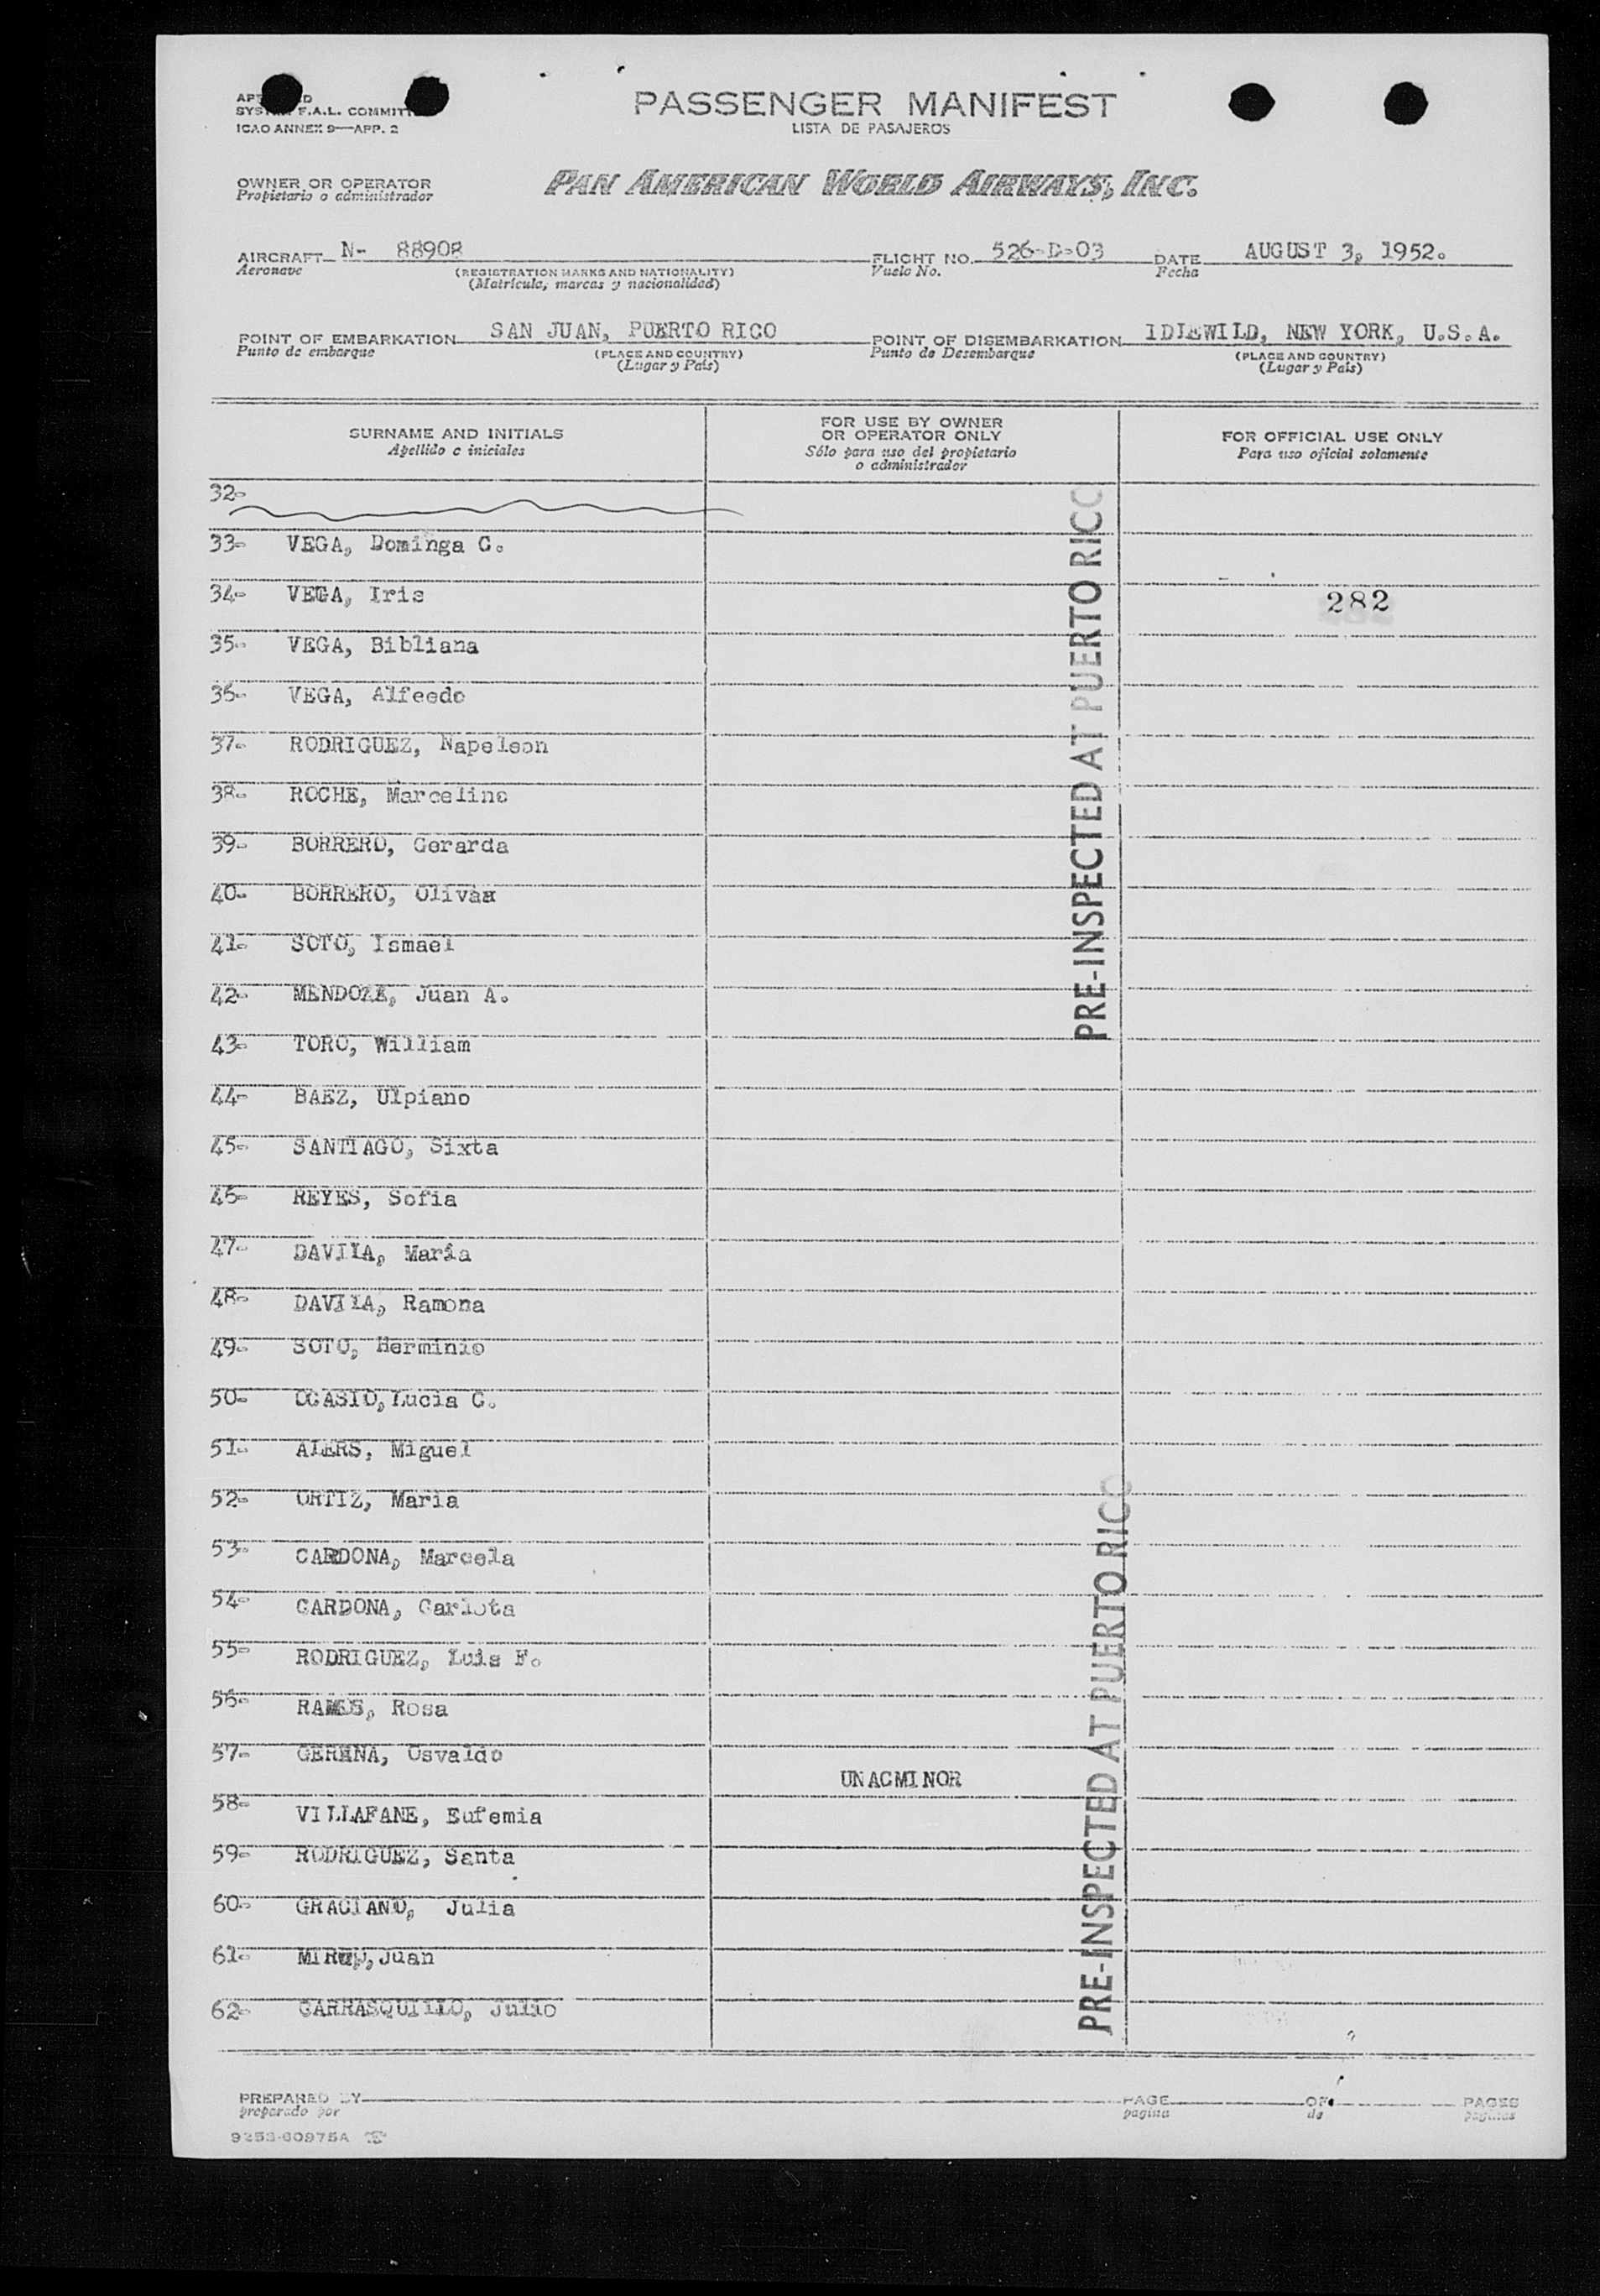 PASSENGER MANIFEST
LISTA DE PASAJEROS
F.A.L.
ICAO ANNEX 9—APP. 2
OWNER OR OPERATOR
Propietario o administrador
PAN AMERICAN WORLD AIRWAYS, INC.
AIRCRAFT N- 88908 FLIGHT NO. 526-D-03 DATE AUGUST 3, 1952.
Aeronave (REGISTRATION MARKS AND NATIONALITY) Vuelo No. Fecha
(Matrícula, marcas y nacionalidad)
POINT OF EMBARKATION SAN JUAN, PUERTO RICO POINT OF DISEMBARKATION IDLEWILD, NEW YORK, U.S.A.
Punto de embarque (PLACE AND COUNTRY) Punto de Desembarque (PLACE AND COUNTRY)
(Lugar y País) (Lugar y País)
SURNAME AND INITIALS
Apellido e iniciales
FOR USE BY OWNER
OR OPERATOR ONLY
Sólo para uso del propietario
o administrador
FOR OFFICIAL USE ONLY
Para uso oficial solamente
32-
33- VEGA, Dominga C.
34- VEGA, Iris 282
35- VEGA, Bibliana
36- VEGA, Alfeedo
37- RODRIGUEZ, Napoleon
38- ROCHE, Marcelino
39- BORRERO, Gerarda
40- BORRERO,
41- SOTO, Ismael
42- MENDOZA, Juan A.
43- TORO, William
44- BAEZ, Ulpiano
45- SANTIAGO, Sixta
46- REYES, Sofia
47- DAVILA, Maria
48- DAVILA, Ramona
49- SOTO, Herminio
50- OCASIO, Lucia C.
51- ALERS, Miguel
52- ORTIZ, Maria
53- CARDONA, Marcela
54- CARDONA, Carlota
55- RODRIGUEZ, Luis F.
56- RAMOS, Rosa
57- GERENA, Osvaldo
UNACMINOR
58- VILLAFANE, Eufemia
59- RODRIGUEZ, Santa
60- GRACIANO, Julia
61- Juan
62- CARRASQUILLO, Julio
PRE-INSPECTED AT PUERTO RICO
PRE-INSPECTED AT PUERTO RICO
PREPARED BY PAGE OF PAGES
preparado por pagina de paginas
9253-60975A